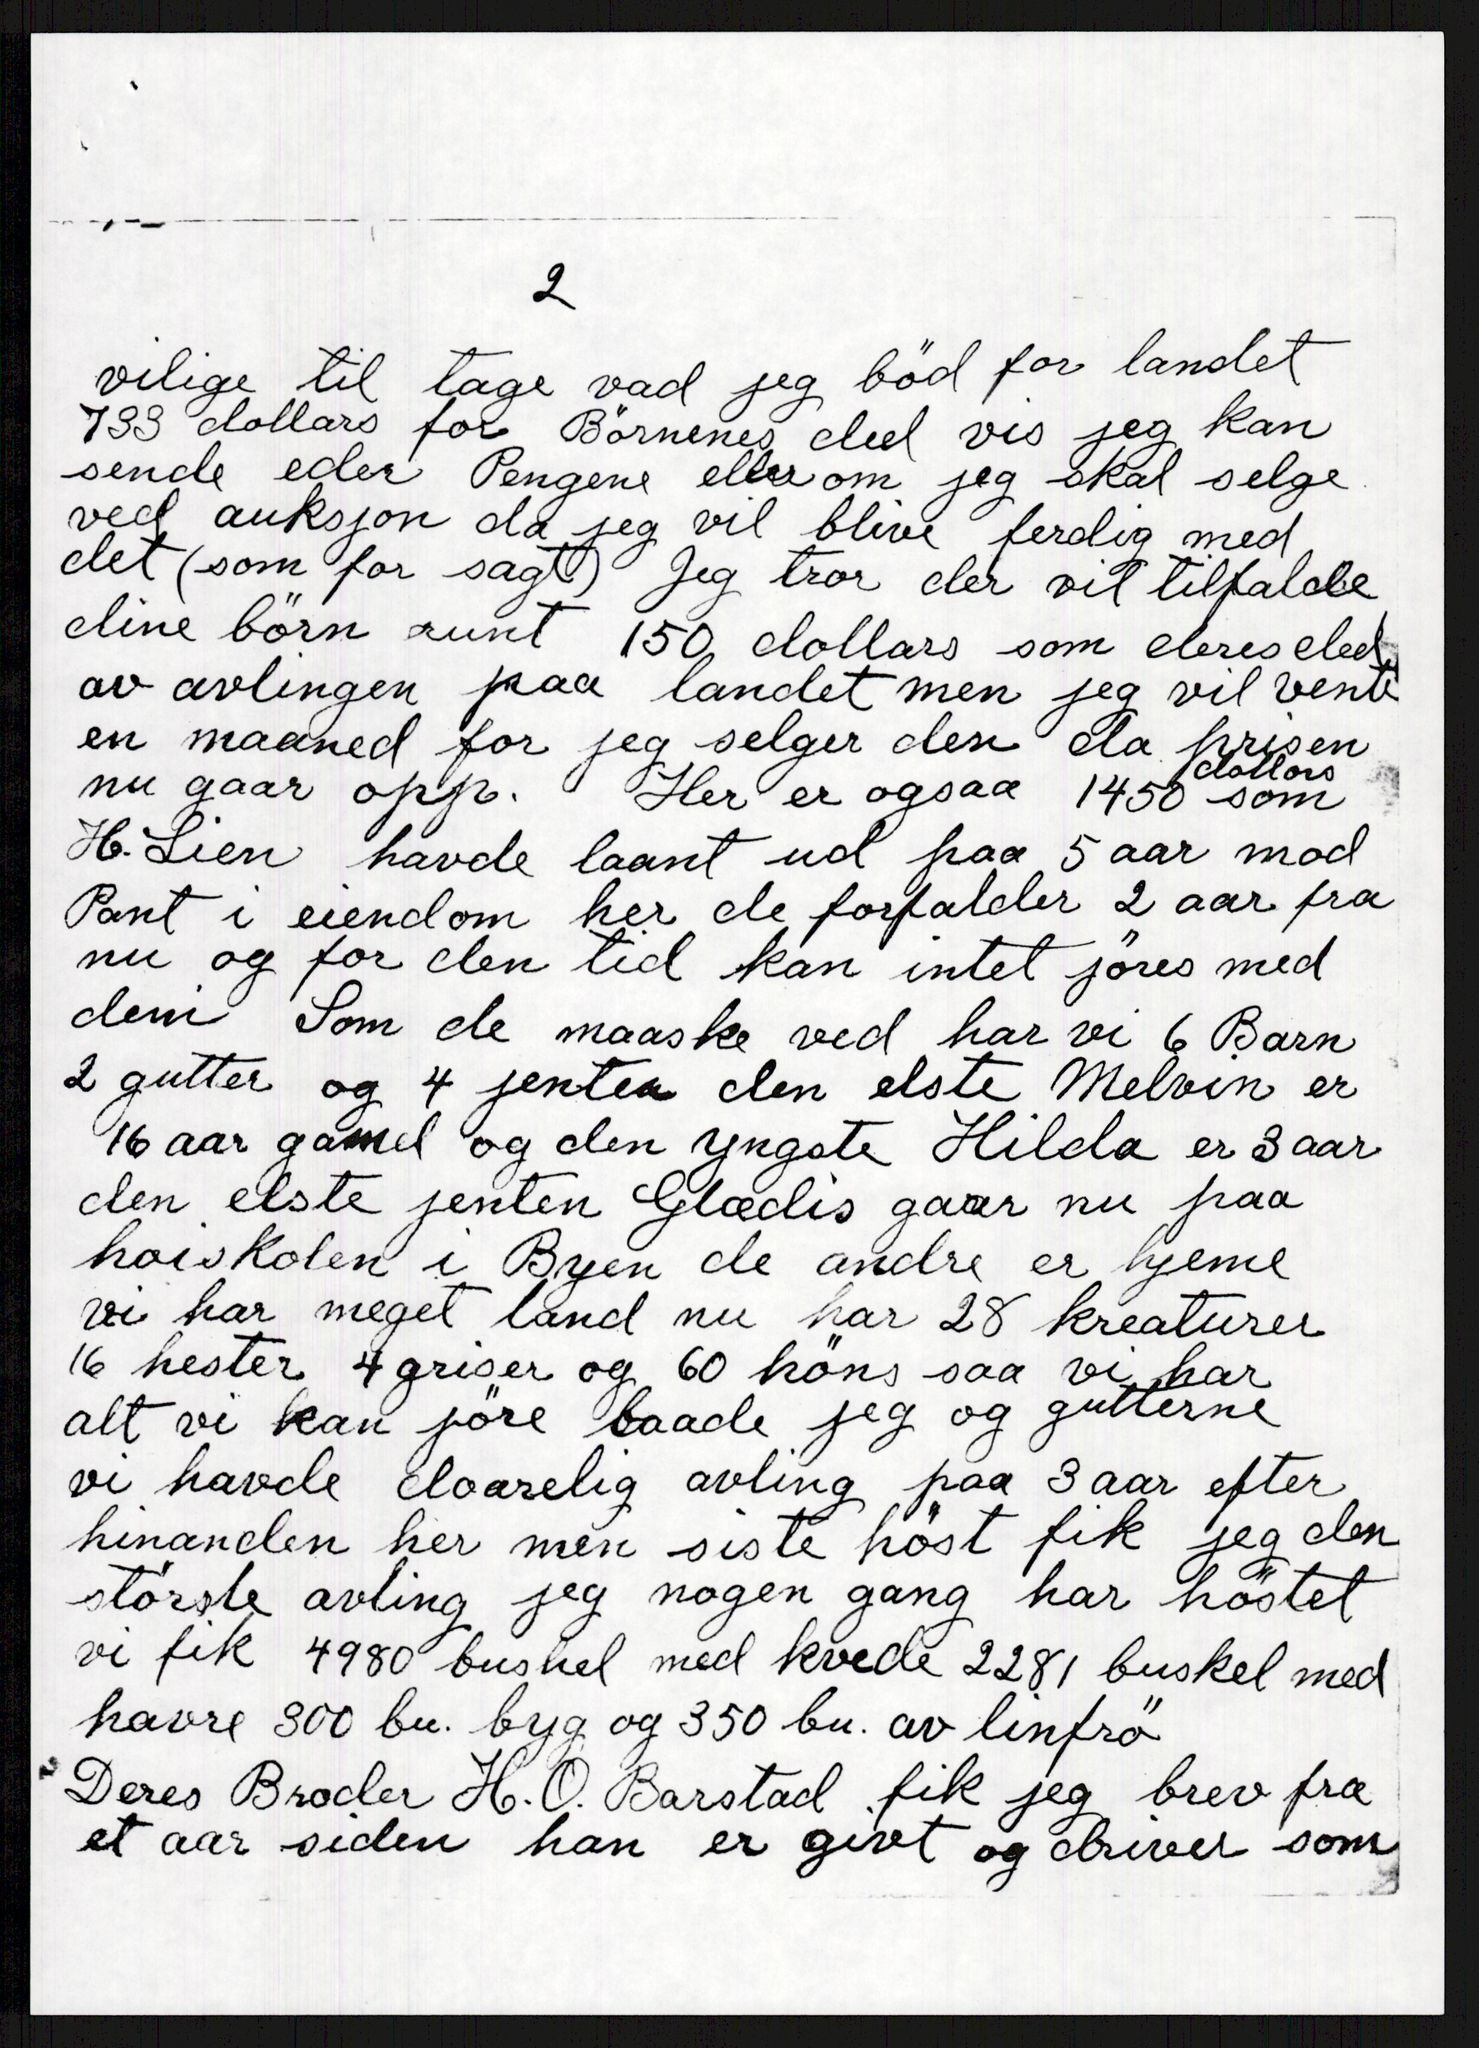 2
vilige til tage vad jeg böd for landet
733 dollars for Börnenes deel vis jeg kan
sende eder Pengene eller om jeg skal selge
ved auksjon da jeg vil blive ferdig med
det (som för sagt) Jeg tror der vil tilfalde
dine börn runt 150 dollars som deres deel
av avlingen paa landet men jeg vil vente
en maaned for jeg selger den da prisen
nu gaar opp. Her er ogsaa 1450 dollars som
H. Lien havde laant ud paa 5 aar mod
Pant i eiendom her de forfalder 2 aar fra
nu og for den tid kan intet jöres med
dem Som de maaske ved har vi 6 Barn
2 gutter og 4 jenter den elste Melvin er
16 aar gamel og den yngste Hilda er 3 aar
den elste jenten Glædis gaar nu paa
hoiskolen i Byen de andre er hjeme
vi har meget land nu har 28 kreaturer
16 hester 4 griser og 60 höns saa vi har
alt vi kan jöre baade jeg og gutterne
vi havde daarelig avling paa 3 aar efter
hinanden her men siste höst fik jeg den
störste avling jeg nogen gang har höstet
vi fik 4980 bushel med kvede 2281 buskel med
havre 300 bu. byg og 350 bu. av linfrö
Deres Broder H. O. Barstad fik jeg brev fra
et aar siden han er givt og driver som